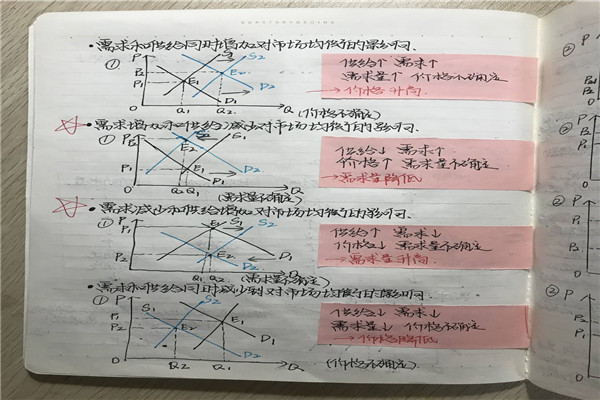 ·需求和供给同时增加对市场均衡的影响.
① P S₁ S₂
P₂ E₂
P₁ E₁
D₁ D₂
O Q₁ Q₂ Q (价格不确定)
供给↑ 需求↑
需求量↑ 价格不确定
→价格升高
☆·需求增加和供给减少对市场均衡的影响.
① P S₁
P₂ E₂
P₁ E₁
D₁ D₂
O Q₂ Q₁ Q
(需求量不确定)
供给↓ 需求↑
价格↑ 需求量不确定
→需求量降低
☆·需求减少和供给增加对市场均衡的影响.
① P E₁ S₁ S₂
P₁
P₂ E₂
D₁ D₂
O Q₁ Q₂ Q
(需求量不确定)
供给↑ 需求↓
价格↓ 需求量不确定
→需求量升高
·需求和供给同时减少对市场均衡的影响.
① P S₁ S₂
P₁ E₁
P₂ E₂
D₁
D₂
O Q₂ Q₁ Q (价格不确定)
供给↓ 需求↓
需求量↓ 价格不确定
→价格降低
② P
P₁
②
②
P₁
P₂
② P
P₁
P₂